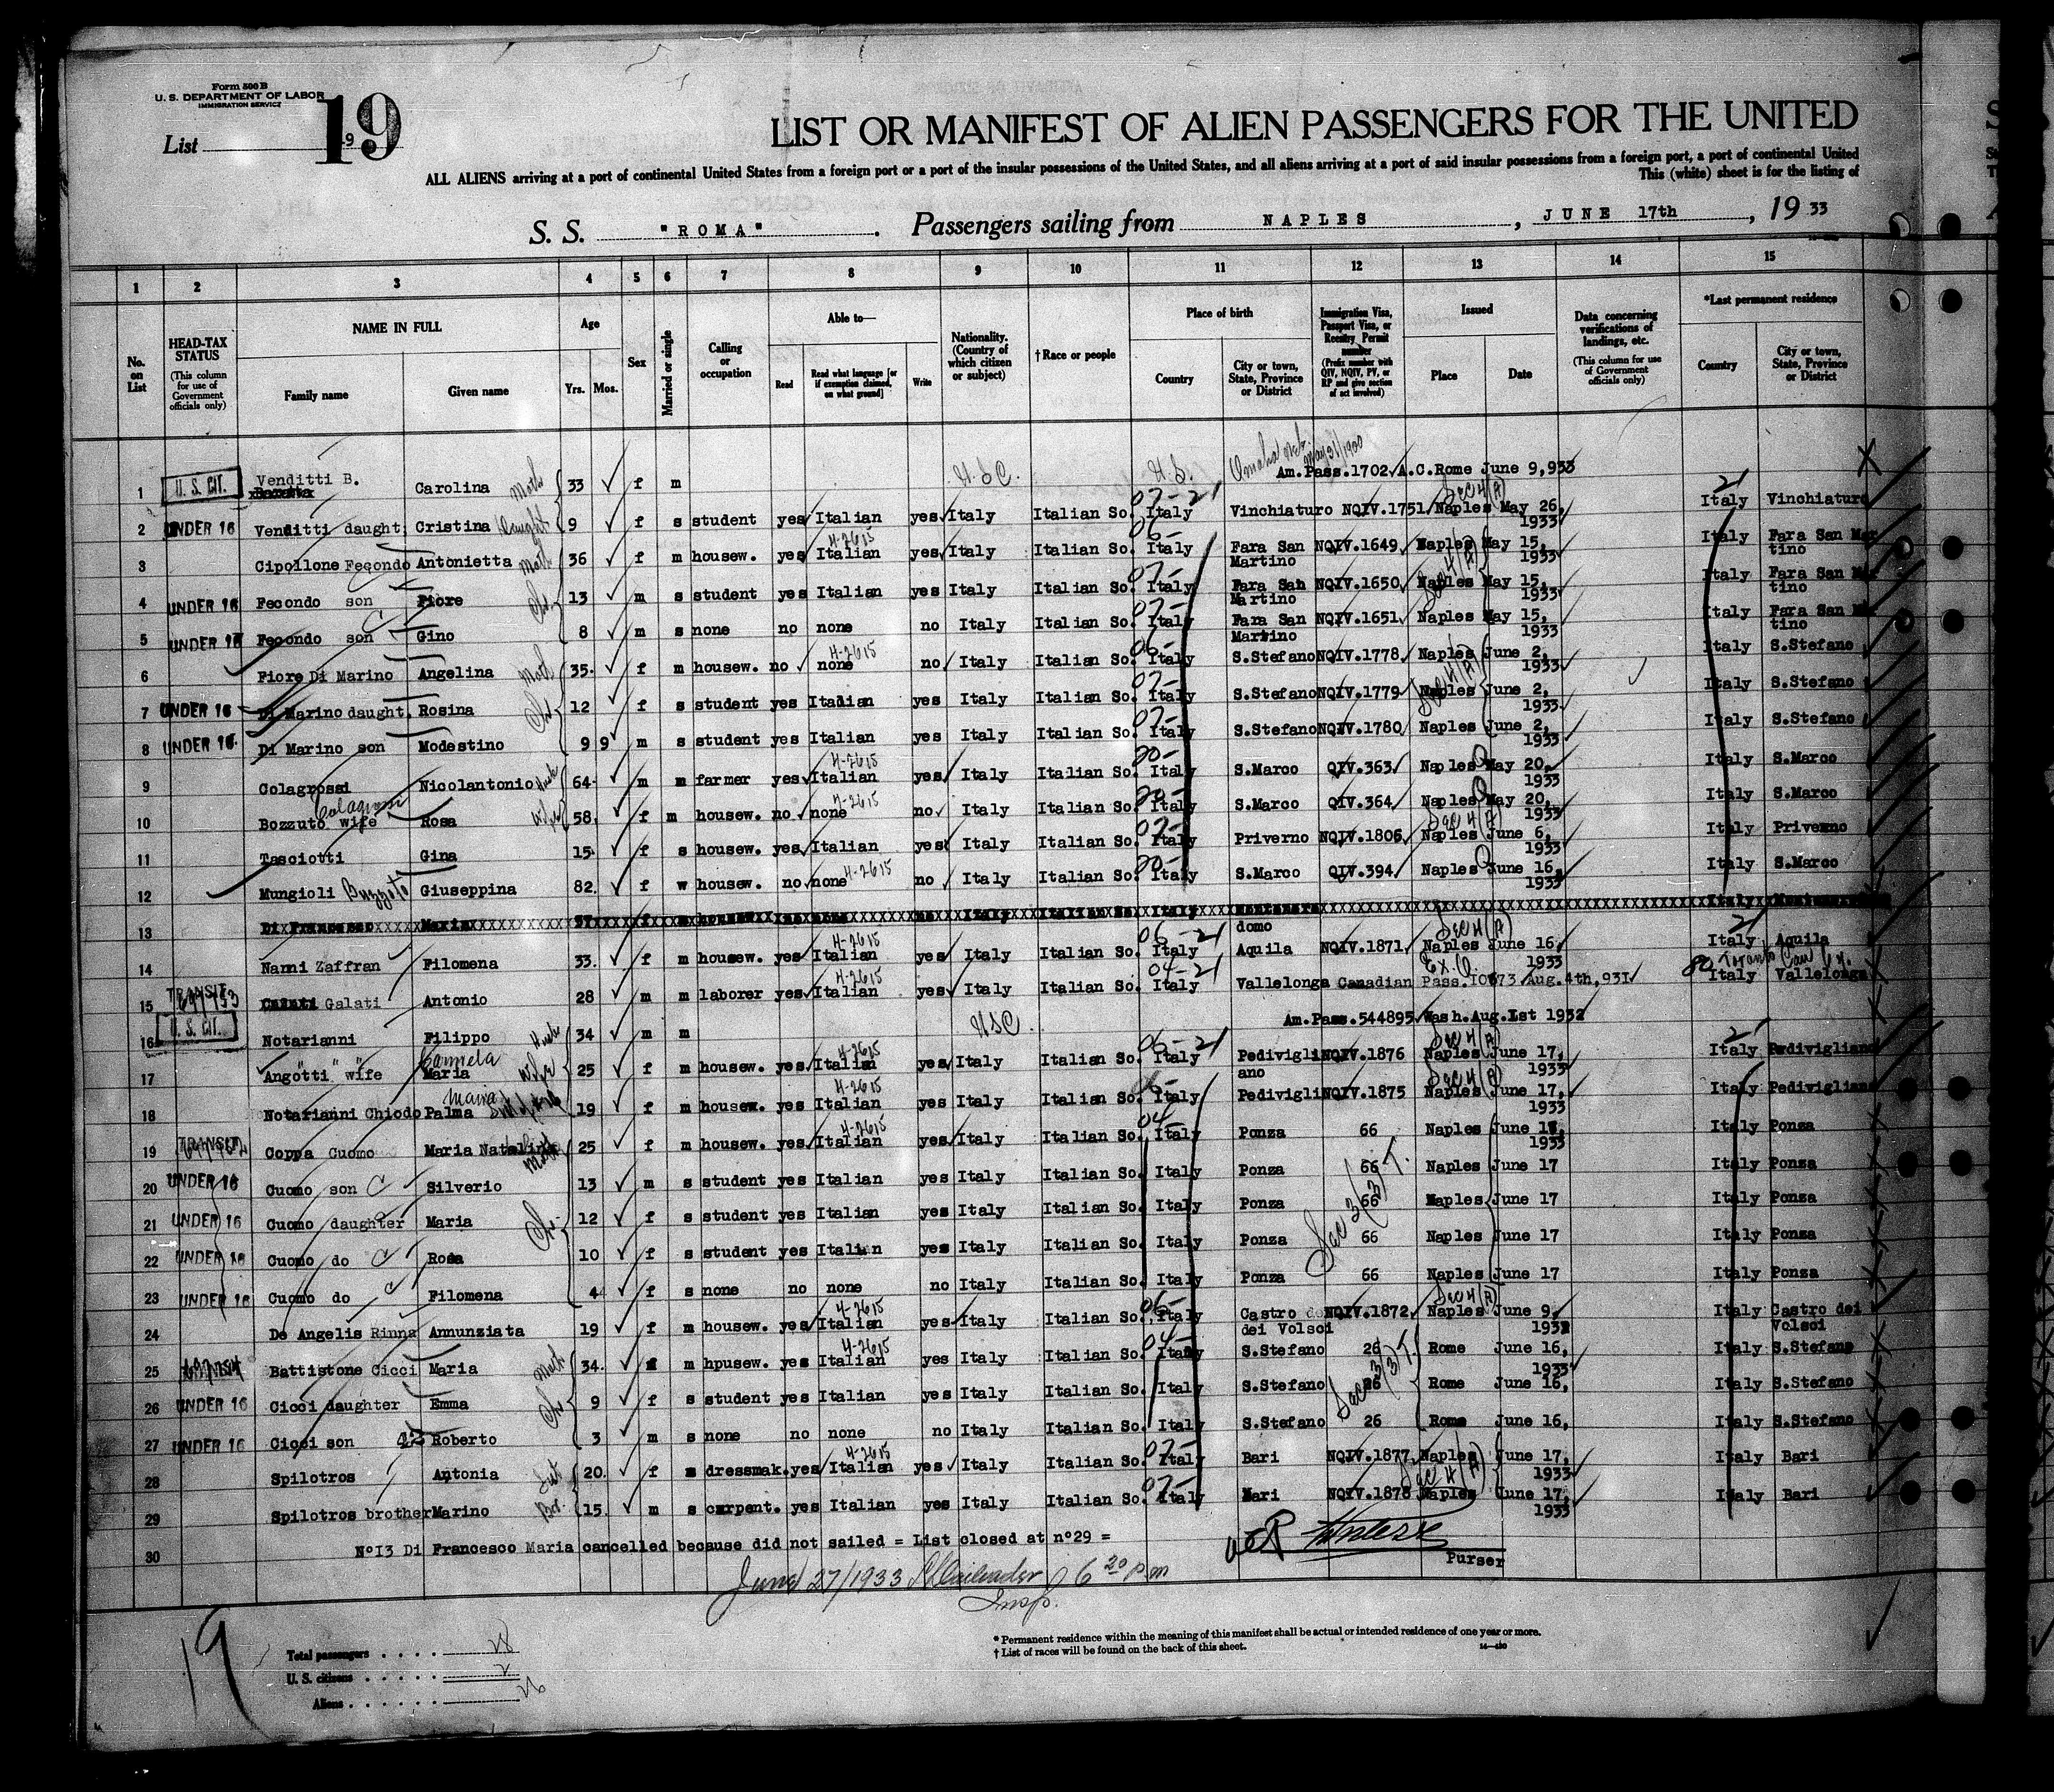 Form 500 B
U. S. DEPARTMENT OF LABOR
IMMIGRATION SERVICE
List 19
LIST OR MANIFEST OF ALIEN PASSENGERS FOR THE UNITED
ALL ALIENS arriving at a port of continental United States from a foreign port or a port of the insular possessions of the United States, and all aliens arriving at a port of said insular possessions from a foreign port, a port of continental United
This (white) sheet is for the listing of
S. S. "ROMA". Passengers sailing from NAPLES, JUNE 17th, 1933
1 2 3 4 5 6 7 8 9 10 11 12 13 14 15
No. on List
HEAD-TAX STATUS (This column for use of Government officials only)
NAME IN FULL Family name Given name
Age Yrs. Mos.
Sex
Married or single
Calling or occupation
Able to— Read Read what language [or if exemption claimed, on what ground] Write
Nationality. (Country of which citizen or subject)
†Race or people
Place of birth Country City or town, State, Province or District
Immigration Visa, Passport Visa, or Reentry Permit number (Prefix number with QIV, NQIV, PV, or RP and give section of act involved)
Issued Place Date
Data concerning verifications of landings, etc. (This column for use of Government officials only)
*Last permanent residence Country City or town, State, Province or District
1 U. S. CIT. Venditti B. Carolina Moth 33 f m U.S.C. U.S. Omaha Neb. May 31/1900 Am.Pass.1702 A.C.Rome June 9,933 Italy Vinchiaturo
2 UNDER 16 Venditti daught. Cristina Daught 9 f s student yes Italian yes Italy Italian So. Italy Vinchiaturo NQIV.1751 Naples May 26, 1933
3 Cipollone Fecondo Antonietta Moth 36 f m housew. yes Italian yes Italy Italian So. Italy Fara San Martino NQIV.1649 Naples May 15, 1933 Italy Fara San Mar tino
4 UNDER 16 Fecondo son Fiore 13 m s student yes Italian yes Italy Italian So. Italy Fara San Martino NQIV.1650 Naples May 15, 1933 Italy Fara San Mar tino
5 UNDER 16 Fecondo son Gino 8 m s none no none no Italy Italian So. Italy Fara San Martino NQIV.1651 Naples May 15, 1933 Italy Fara San Mar tino
6 Fiore Di Marino Angelina Moth 35 f m housew. no none no Italy Italian So. Italy S.Stefano NQIV.1778 Naples June 2, 1933 Italy S.Stefano
7 UNDER 16 Di Marino daught. Rosina 12 f s student yes Italian yes Italy Italian So. Italy S.Stefano NQIV.1779 Naples June 2, 1933 Italy S.Stefano
8 UNDER 16 Di Marino son Modestino 9 9 m s student yes Italian yes Italy Italian So. Italy S.Stefano NQIV.1780 Naples June 2, 1933 Italy S.Stefano
9 Colagrossi Nicolantonio Husb 64 m m farmer yes Italian yes Italy Italian So. Italy S.Marco QIV.363 Naples May 20, 1933 Italy S.Marco
10 Bozzuto wife Colagrossi Rosa Wife 58 f m housew. no none no Italy Italian So. Italy S.Marco QIV.364 Naples May 20, 1933 Italy S.Marco
11 Tasciotti Gina 15 f s housew. yes Italian yes Italy Italian So. Italy Priverno NQIV.1806 Naples June 6, 1933 Italy Priverno
12 Mungioli Buzzoto Giuseppina 82 f w housew. no none no Italy Italian So. Italy S.Marco QIV.394 Naples June 16, 1933 Italy S.Marco
13 Di Francesco Maria domo
14 Nanni Zaffran Filomena 33 f m housew. yes Italian yes Italy Italian So. Italy Aquila NQIV.1871 Naples June 16, 1933 Italy Aquila
15 TRANSIT Galati Antonio 28 m m laborer yes Italian yes Italy Italian So. Italy Vallelonga Canadian Pass. Aug.4th,931 Italy Vallelonga
16 U. S. CIT. Notarianni Filippo Husb 34 m m USC Am.Pass.544895 Wash.Aug.Ist 1932
17 Angotti " wife Carmela Maria Wife 25 f m housew. yes Italian yes Italy Italian So. Italy Pedivigliano NQIV.1876 Naples June 17, 1933 Italy Pedivigliano
18 Notarianni Chiodo Palma Maria 19 f m housew. yes Italian yes Italy Italian So. Italy Pedivigli NQIV.1875 Naples June 17, 1933 Italy Pedivigliano
19 TRANSIT Coppa Cuomo Maria Natalina Moth 25 f m housew. yes Italian yes Italy Italian So. Italy Ponza 66 Naples June 17, 1933 Italy Ponza
20 UNDER 16 Cuomo son Silverio 13 m s student yes Italian yes Italy Italian So. Italy Ponza 66 Naples June 17 Italy Ponza
21 UNDER 16 Cuomo daughter Maria 12 f s student yes Italian yes Italy Italian So. Italy Ponza 66 Naples June 17 Italy Ponza
22 UNDER 16 Cuomo do Rosa 10 f s student yes Italian yes Italy Italian So. Italy Ponza 66 Naples June 17 Italy Ponza
23 UNDER 16 Cuomo do Filomena 4 f s none no none no Italy Italian So. Italy Ponza 66 Naples June 17 Italy Ponza
24 De Angelis Rinna Annunziata 19 f m housew. yes Italian yes Italy Italian So. Italy Castro dei Volsci NQIV.1872 Naples June 9, Italy Castro dei Volsci
25 Battistone Cicci Maria Moth 34 m hpusew. yes Italian yes Italy Italian So. Italy S.Stefano 26 Rome June 16, 1933 Italy S.Stefano
26 UNDER 16 Cicci daughter Emma 9 f s student yes Italian yes Italy Italian So. Italy S.Stefano 26 Rome June 16, Italy S.Stefano
27 UNDER 16 Cicci son Roberto 3 m s none no none no Italy Italian So. Italy S.Stefano 26 Rome June 16, Italy S.Stefano
28 Spilotros Antonia 20 f s dressmak. yes Italian yes Italy Italian So. Italy Bari NQIV.1877 Naples June 17, 1933 Italy Bari
29 Spilotros brother Marino 15 m s carpent. yes Italian yes Italy Italian So. Italy Bari NQIV.1878 Naples June 17, 1933 Italy Bari
30 N°I3 Di Francesco Maria cancelled because did not sailed = List closed at n°29 =
Purser
June 27/1933 6 20 pm
Insp.
19
Total passengers . . . . . 28
U. S. citizens . . . . . . 2
Aliens . . . . . . . 26
* Permanent residence within the meaning of this manifest shall be actual or intended residence of one year or more.
† List of races will be found on the back of this sheet.
14—430